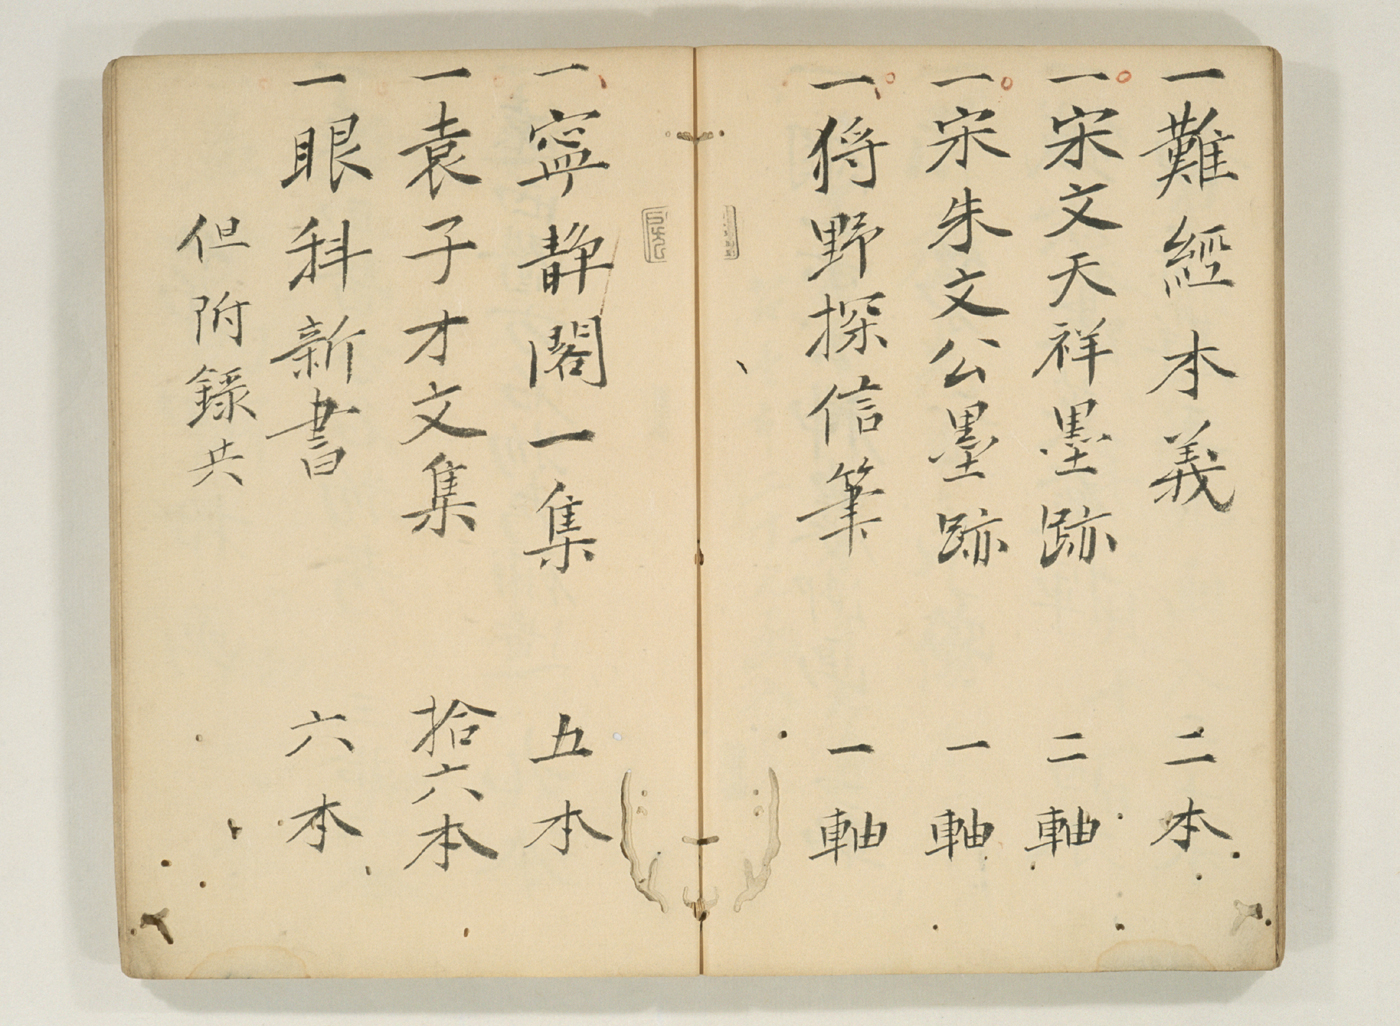 一難經本義 二本
一宋文天祥墨跡 二軸
一宋朱文公墨跡 一軸
一狩野探信筆 一軸
一寧静閣一集 五本
一袁子才文集 拾六本
一眼科新書 六本
但附錄共